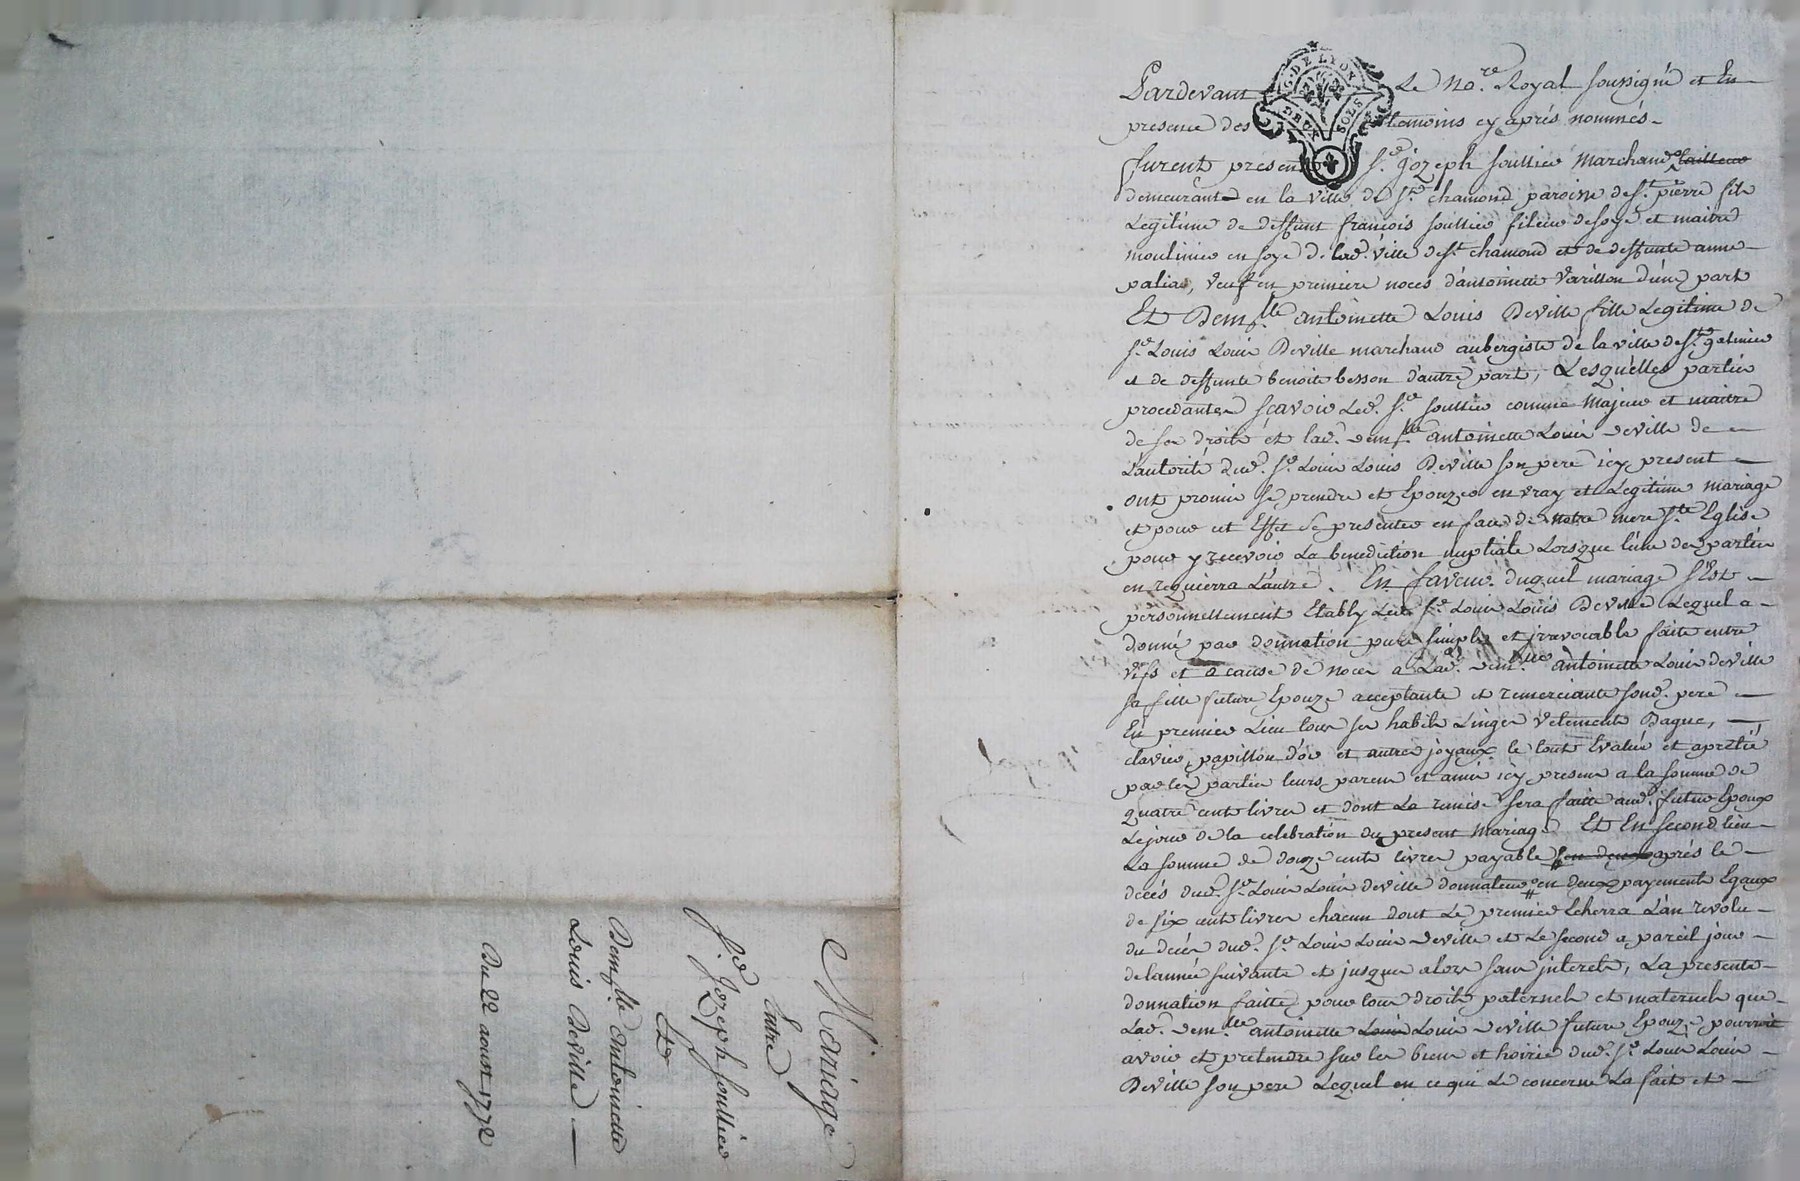 Mariage
Entre
Sr. Jozeph Soullier
Et
Demslle antoinette
Louis Deville
Du 22 aoust 1772
G. DE LYON
DEUX SOLS
Pardevant Le Nore. Royal soussigné et En
presence des temoins cy aprés nommés
furent presents Sr. Jozeph Soullier Marchand
demeurant en la ville de St. chamond paroisse de St. pierre fils
Legitime de deffunt françois Soullier fileur de soye et maitre
moulinier en soye de lad. ville de St. chamond et de deffunte anne
palias, veuf en premiere noces d'antoinette Varillon d'une part
Et Demslle antoinette Louis Deville fille Legitime de
Sr. Louis Louis Deville marchand aubergiste de la ville de St. galmier
et de deffunte benoite besson d'autre part, Lesquelles parties
procedantes sçavoir Led. Sr. Soullier comme Majeur et maitre
de ses droits et lad. demslle antoinette Louis Deville de
L'autorité dud. Sr. Louis Louis Deville son pere icy present
ont promis se prendre et Epouzer en vray et Legitime mariage
et pour cet Effet se presenter en face de notre mere Ste Eglise
pour y recevoir La benediction nuptiale Lorsque l'une des parties
en requierra L'autre. En faveur duquel mariage s'Est
personnellement Etably Led. Sr. Louis Louis Deville Lequel a
donné par donnation pure simple et irrevocable faite entre
vifs et a cause de noces a Lad. demslle antoinette Louis deville
sa fille future Epouze acceptante et remerciante sond. pere
En premier Lieu tous ses habits Linges Vetements Bague,
clavier, papillon d'or et autres joyaux le tout Evalué et apretié
par les parties leurs parens et amis icy presens a la somme de
quatre cent livres et dont La remise sera faitte aud. futur Epoux
Le jour de la celebration du present mariage Et En second lieu
La somme de douze cents livres payable en deux aprés le
decés dud. Sr. Louis Louis deville donnateur en deux payements Egaux
de six cent livres chacun dont Le premier Echerra L'an revolu
du deces dud. Sr. Louis Louis Deville et Le second a pareil jour
de l'année suivante et jusques alors sans interets, La presente
donnation faitte pour tous droits paternels et maternels que
Lad. demslle antoinette Louis Louis Deville future Epouze pourroit
avoir et pretendre sur les biens et hoirie dud. Sr. Louis Louis
Deville son pere Lequel en ce qui Le concerne La fait et